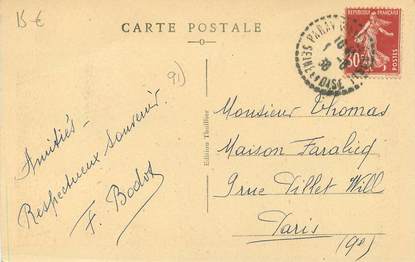 15 €
CARTE POSTALE
91)
PARAY
SEINE ET OISE
REPUBLIQUE FRANÇAISE
30c
POSTES
Amitiés -
Respectueux Souvenir.
F. Bodot
Edition Thuillier
Monsieur Thomas
Maison Faralicq
9 rue Pillet Will
Paris
(9e)